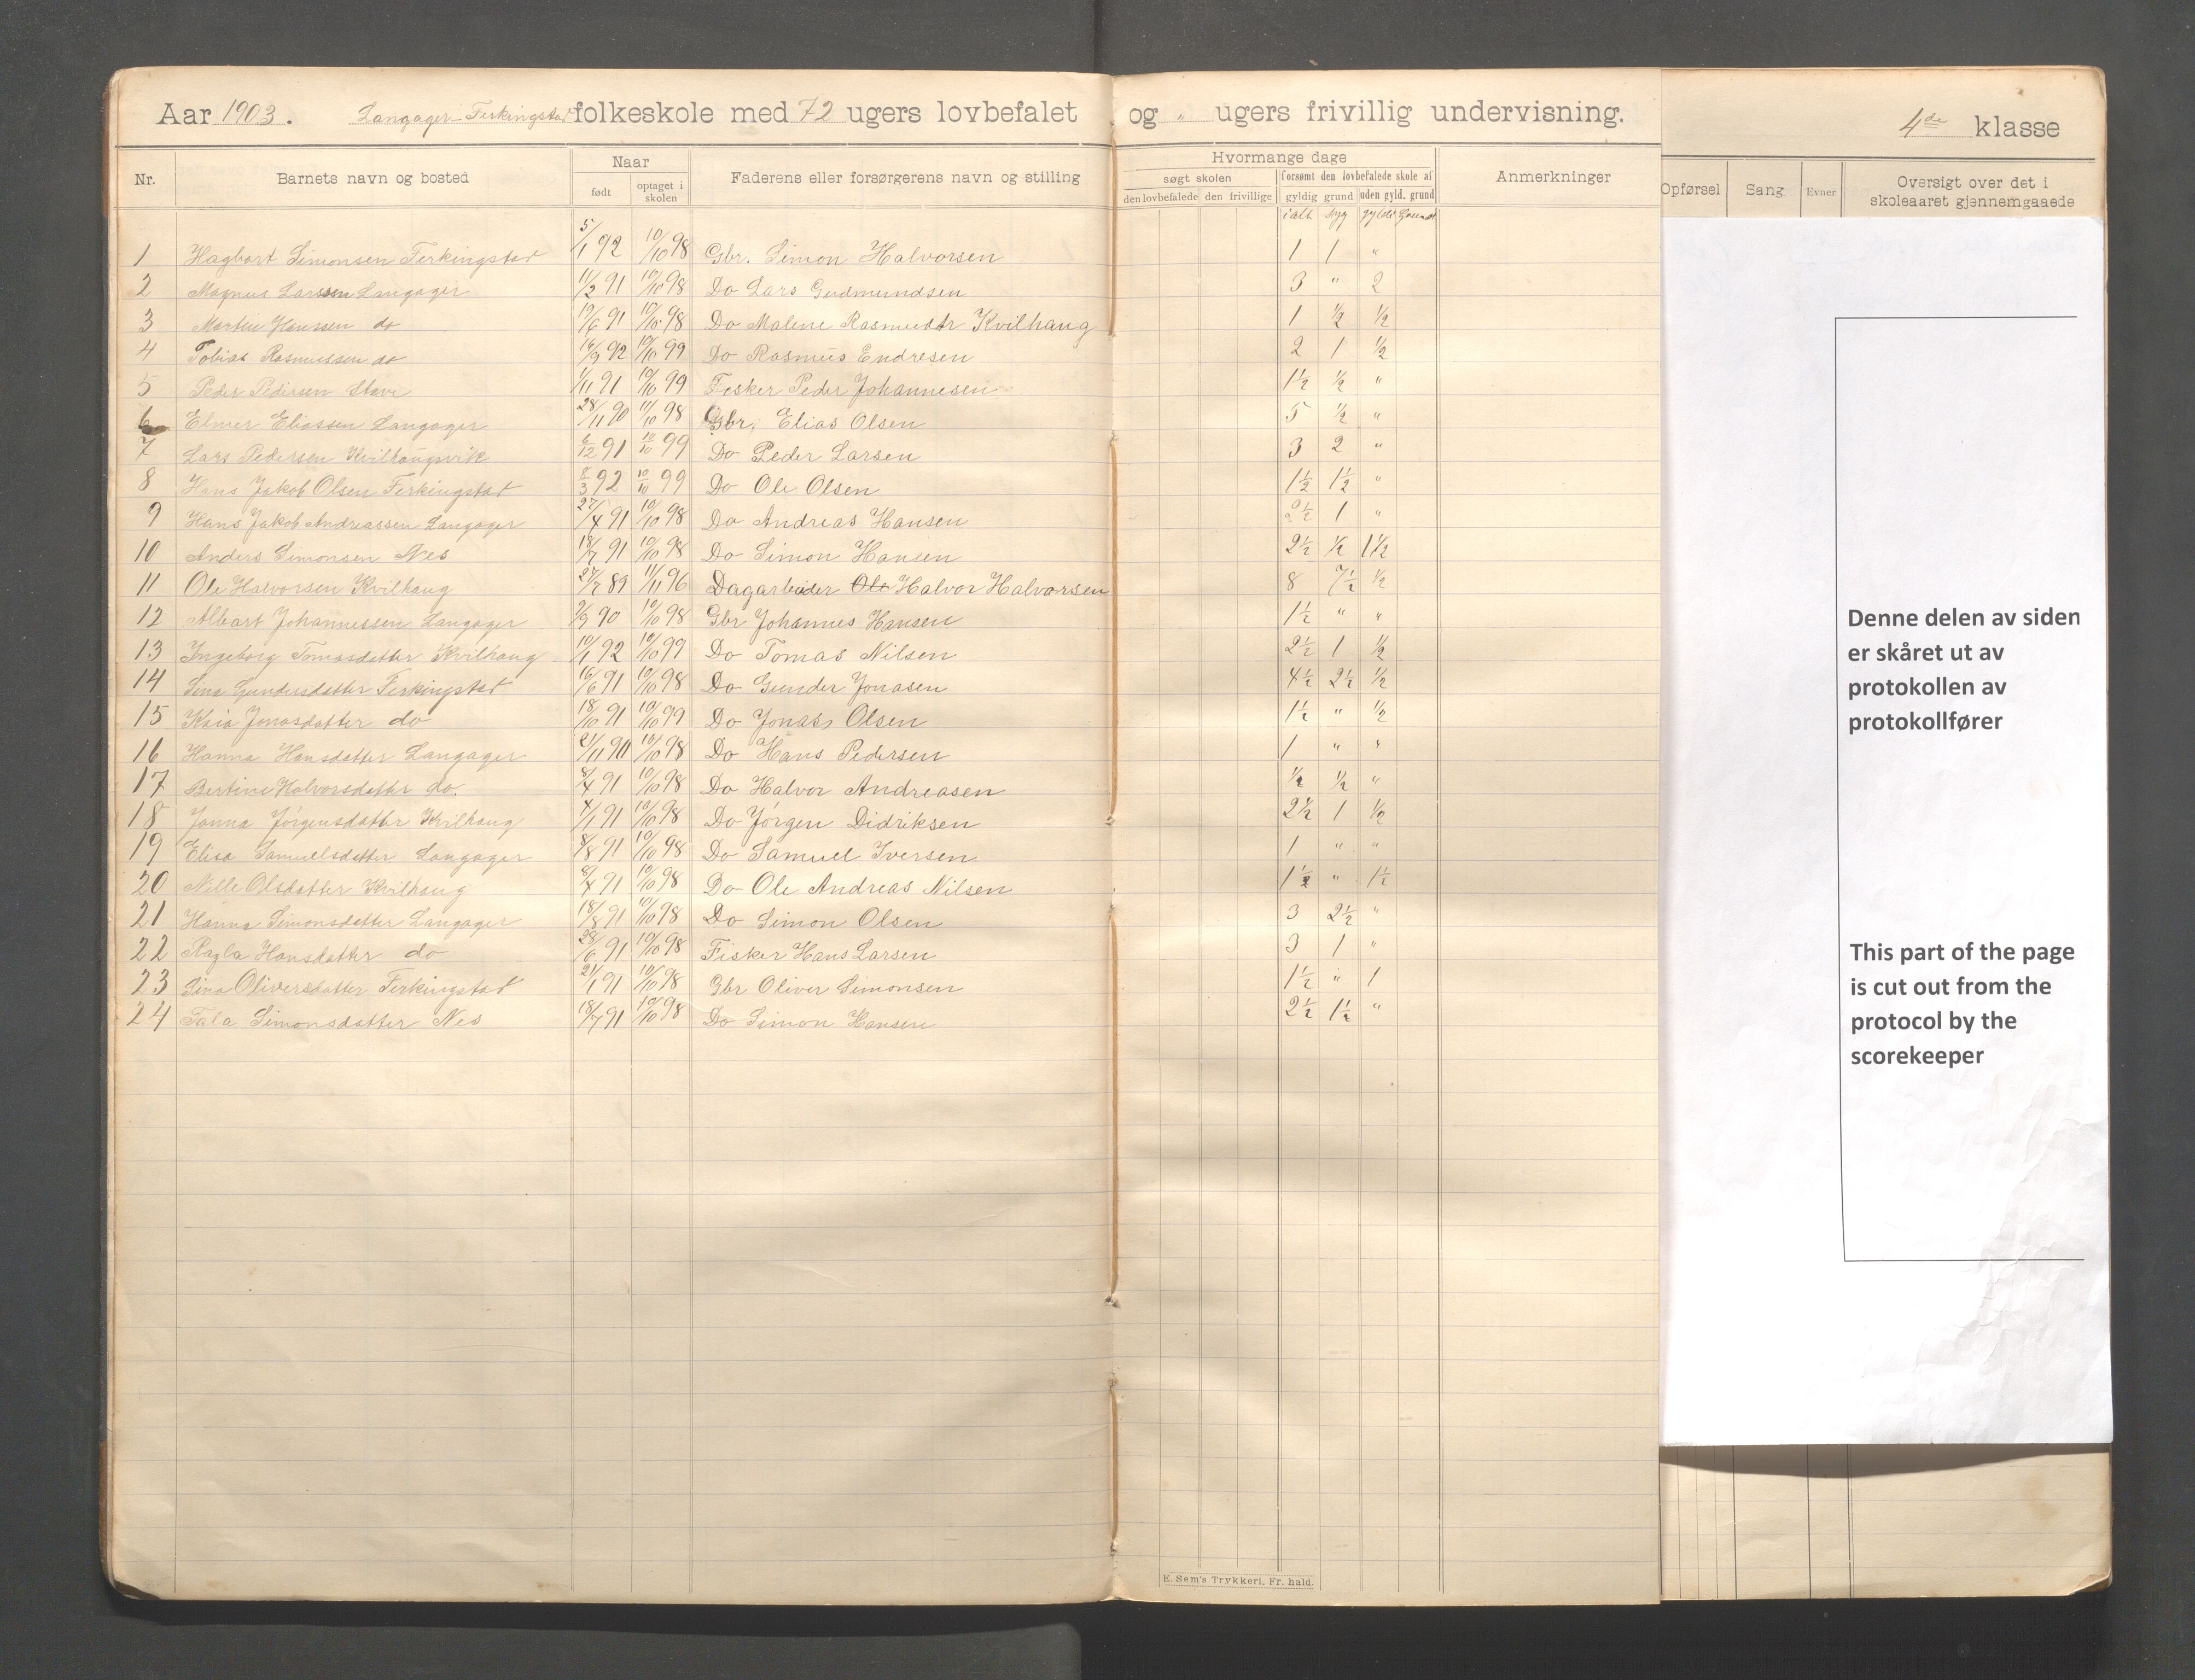 Aar 1903. Langager-Ferkingstad folkeskole med 72 ugers lovbefalet og " ugers frivillig undervisning.
4de klasse
Nr. Barnets navn og bosted Naar født optaget i skolen Faderens eller forsørgerens navn og stilling Hvormange dage søgt skolen den lovbefalede den frivillige forsømt den lovbefalede skole af gyldig grund uden gyld. grund Anmerkninger Opførsel Sang Evner Oversigt over det i skoleaaret gjennemgaaede
i alt syg gyldig Grund
1 Hagbart Simonsen Ferkingstad 5/1 92 10/10 98 Gbr. Simon Halvorsen 1 1 "
2 Magnus Larssen Langager 11/2 91 10/10 98 Do Lars Gudmundsen 3 " 2
3 Martin Hanssen do 19/6 91 10/10 98 Do Malene Rasmusdtr Kvilhaug 1 ½ ½
4 Tobias Rasmussen do 16/9 92 10/10 99 Do Rasmus Endresen 2 1 ½
5 Peder Pedersen Stave 1/11 91 10/10 99 Fisker Peder Johannesen 1½ ½ "
6 Elmer Eliassen Langager 28/11 90 11/10 98 Gbr. Elias Olsen 5 ½ "
7 Lars Pedersen Kvilhaugsvik 6/12 91 10/10 99 Do Peder Larsen 3 2 "
8 Hans Jakob Olsen Ferkingstad 8/3 92 10/10 99 Do Ole Olsen 1½ 1½ "
9 Hans Jakob Andreassen Langager 27/4 91 10/10 98 Do Andreas Hansen 1 "
10 Anders Simonsen Nes 18/7 91 10/10 98 Do Simon Hansen 2½ ½ 1½
11 Ole Halvorsen Kvilhaug 27/7 89 11/11 96 Dagarbeider Ole Halvor Halvorsen 8 7½ ½
12 Albart Johannessen Langager 2/9 90 10/10 98 Gbr Johannes Hansen 1½ " "
13 Ingeborg Tomasdatter Kvilhaug 10/1 92 10/10 99 Do Tomas Nilsen 2½ 1 ½
14 Sina Gundersdatter Ferkingstad 16/6 91 10/10 98 Do Gunder Jonasen 4½ 2½ ½
15 Kaia Jonasdatter do 18/10 91 10/10 99 Do Jonas Olsen 1½ " ½
16 Hanna Hansdatter Langager 21/11 90 10/10 98 Do Hans Pedersen 1 " "
17 Bertine Halvorsdatter do. 8/4 91 10/10 98 Do Halvor Andreasen ½ ½ "
18 Janna Jörgensdatter Kvilhaug 4/1 91 10/10 98 Do Jörgen Didriksen 2½ 1 ½
19 Elisa Samuelsdatter Langager 4/8 91 10/10 98 Do Samuel Iversen 1 " "
20 Nille Olsdatter Kvilhaug 8/4 91 10/10 98 Do Ole Andreas Nilsen 1½ " 1½
21 Hanna Simonsdatter Langager 18/8 91 10/10 98 Do Simon Olsen 3 2½ "
22 Ragla Hansdatter do 28/6 91 10/10 98 Fisker Hans Larsen 3 1 "
23 Sina Oliversdatter Ferkingstad 21/1 91 10/10 98 Gbr Oliver Simonsen 1½ " 1
24 Tala Simonsdatter Nes 18/7 91 10/10 98 Do Simon Hansen 2½ 1½ "
E. Sem's Trykkeri, Fr. hald.
Denne delen av siden
er skåret ut av
protokollen av
protokollfører
This part of the page
is cut out from the
protocol by the
scorekeeper